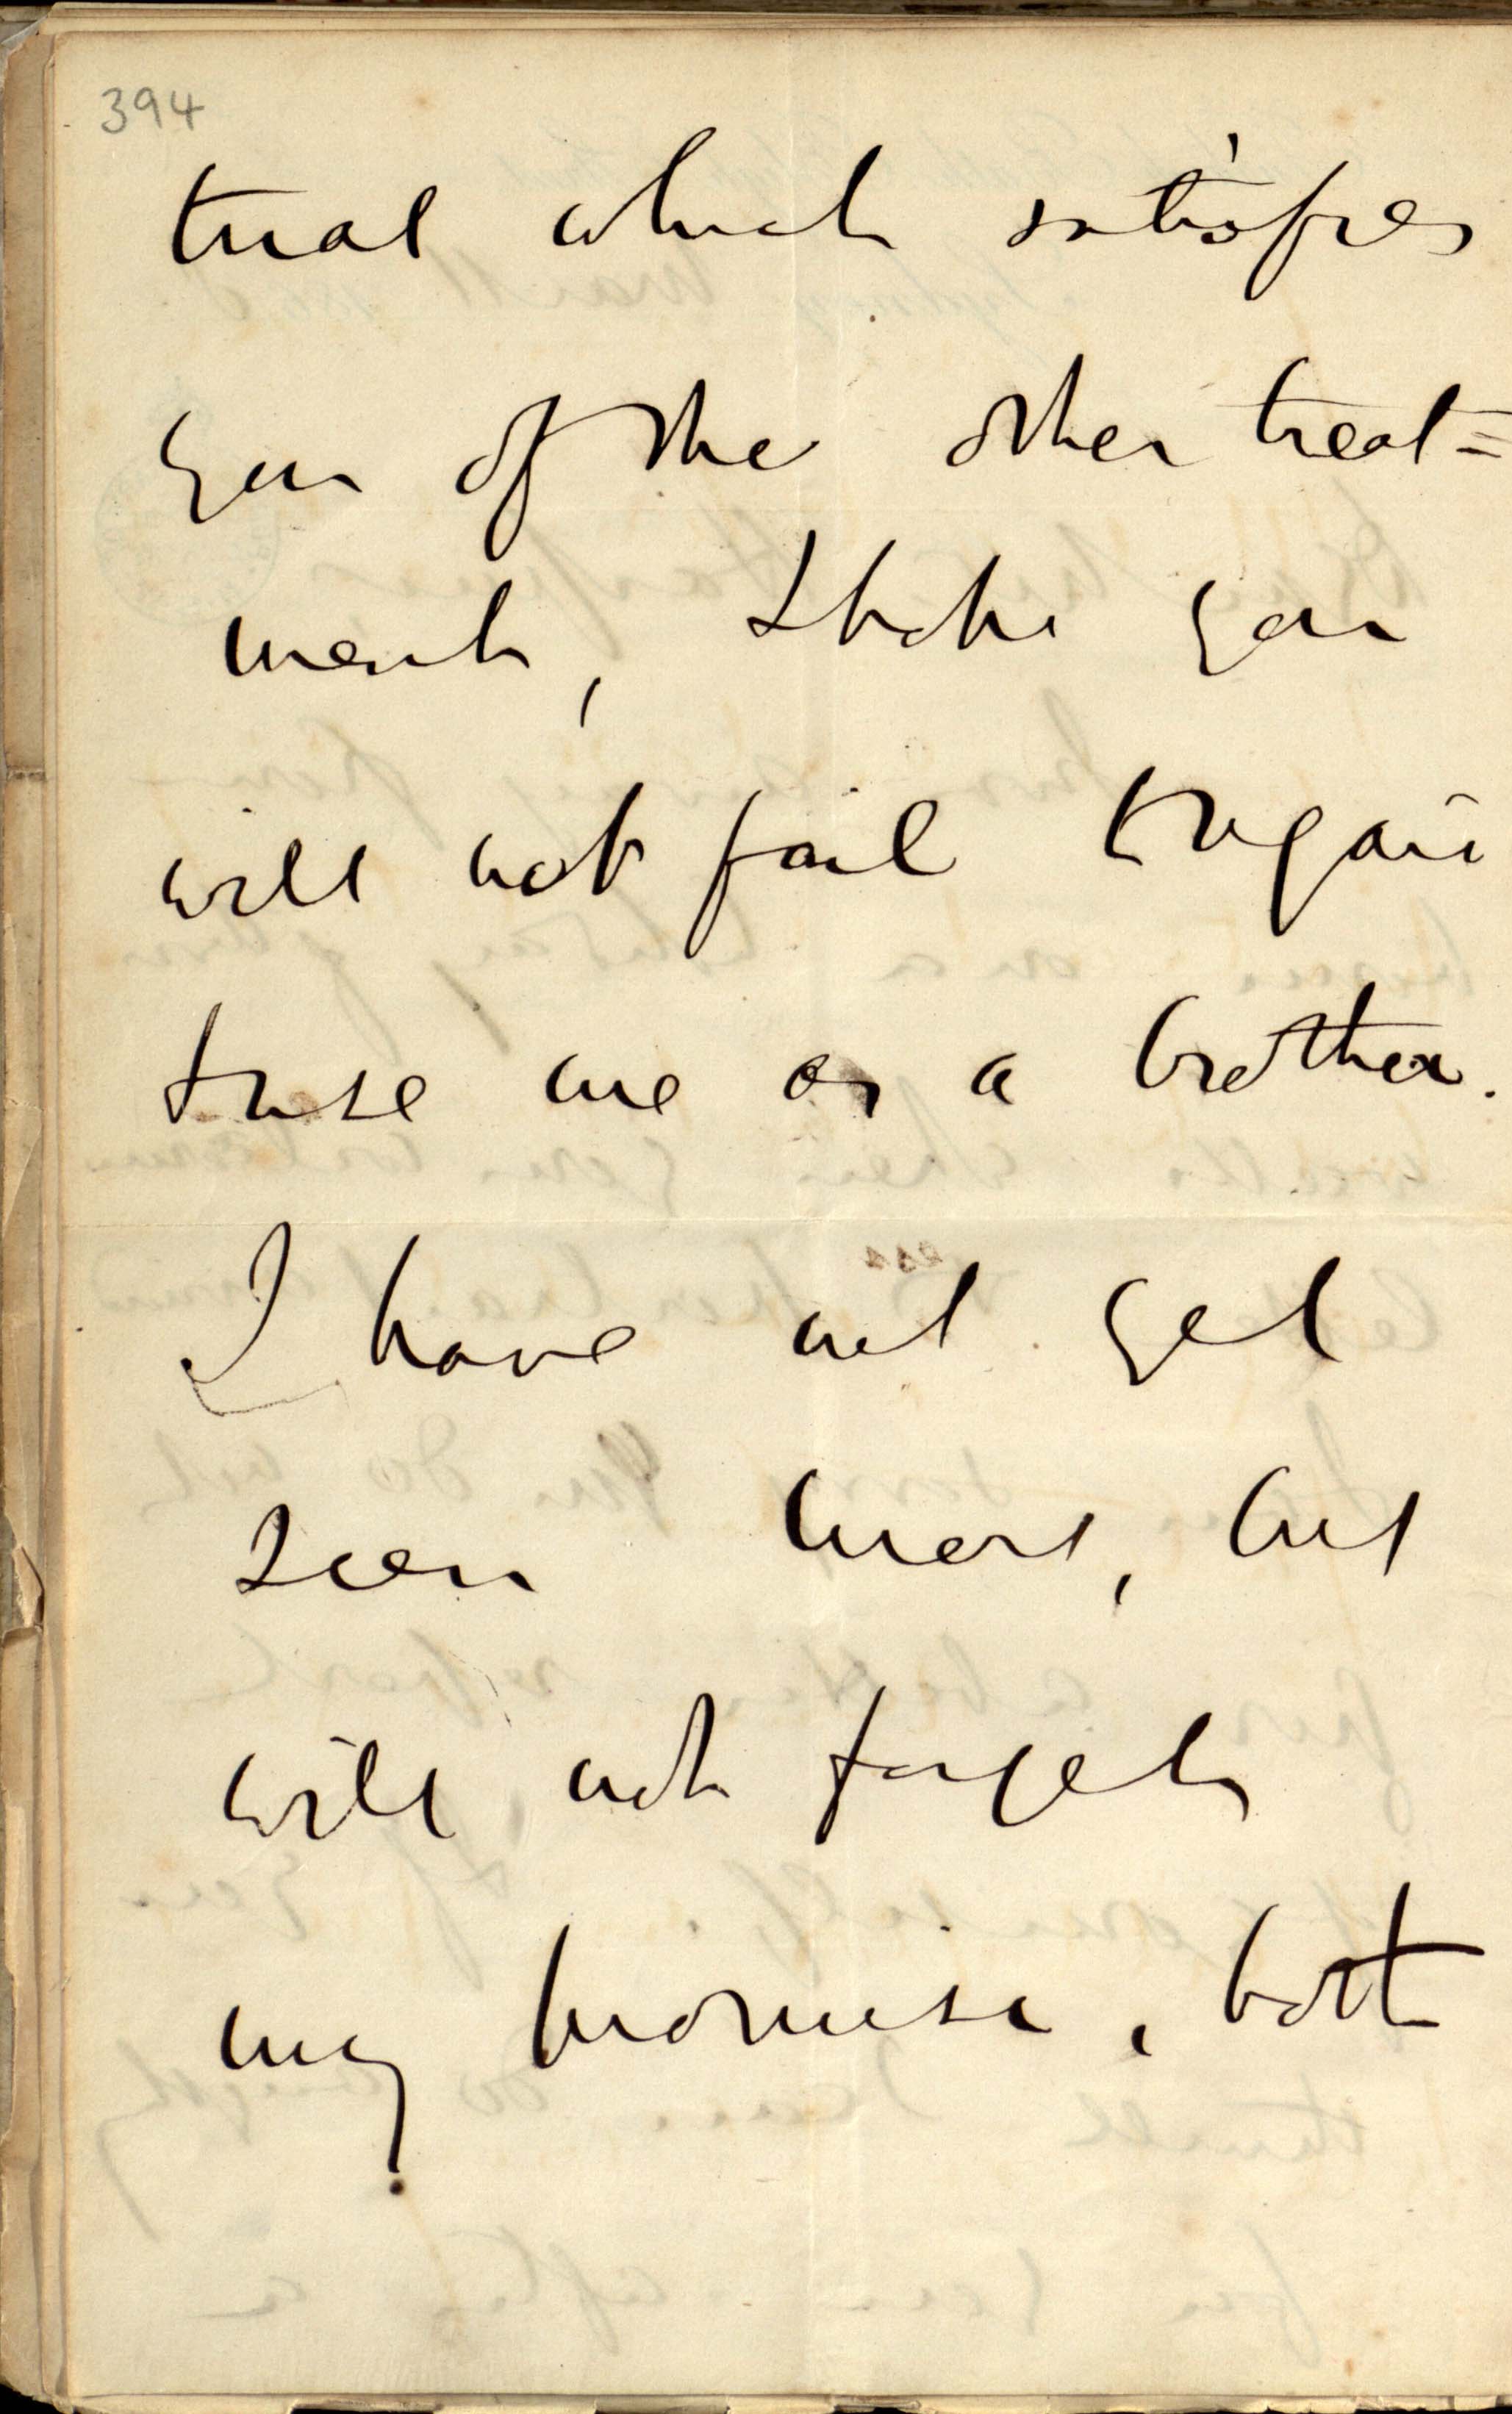 394
trial which satisfies
you of the other treat=
ment, I hope you
will not fail to again
to use me as a brother.
I have not yet
seen, but
will not forget
my promise, both